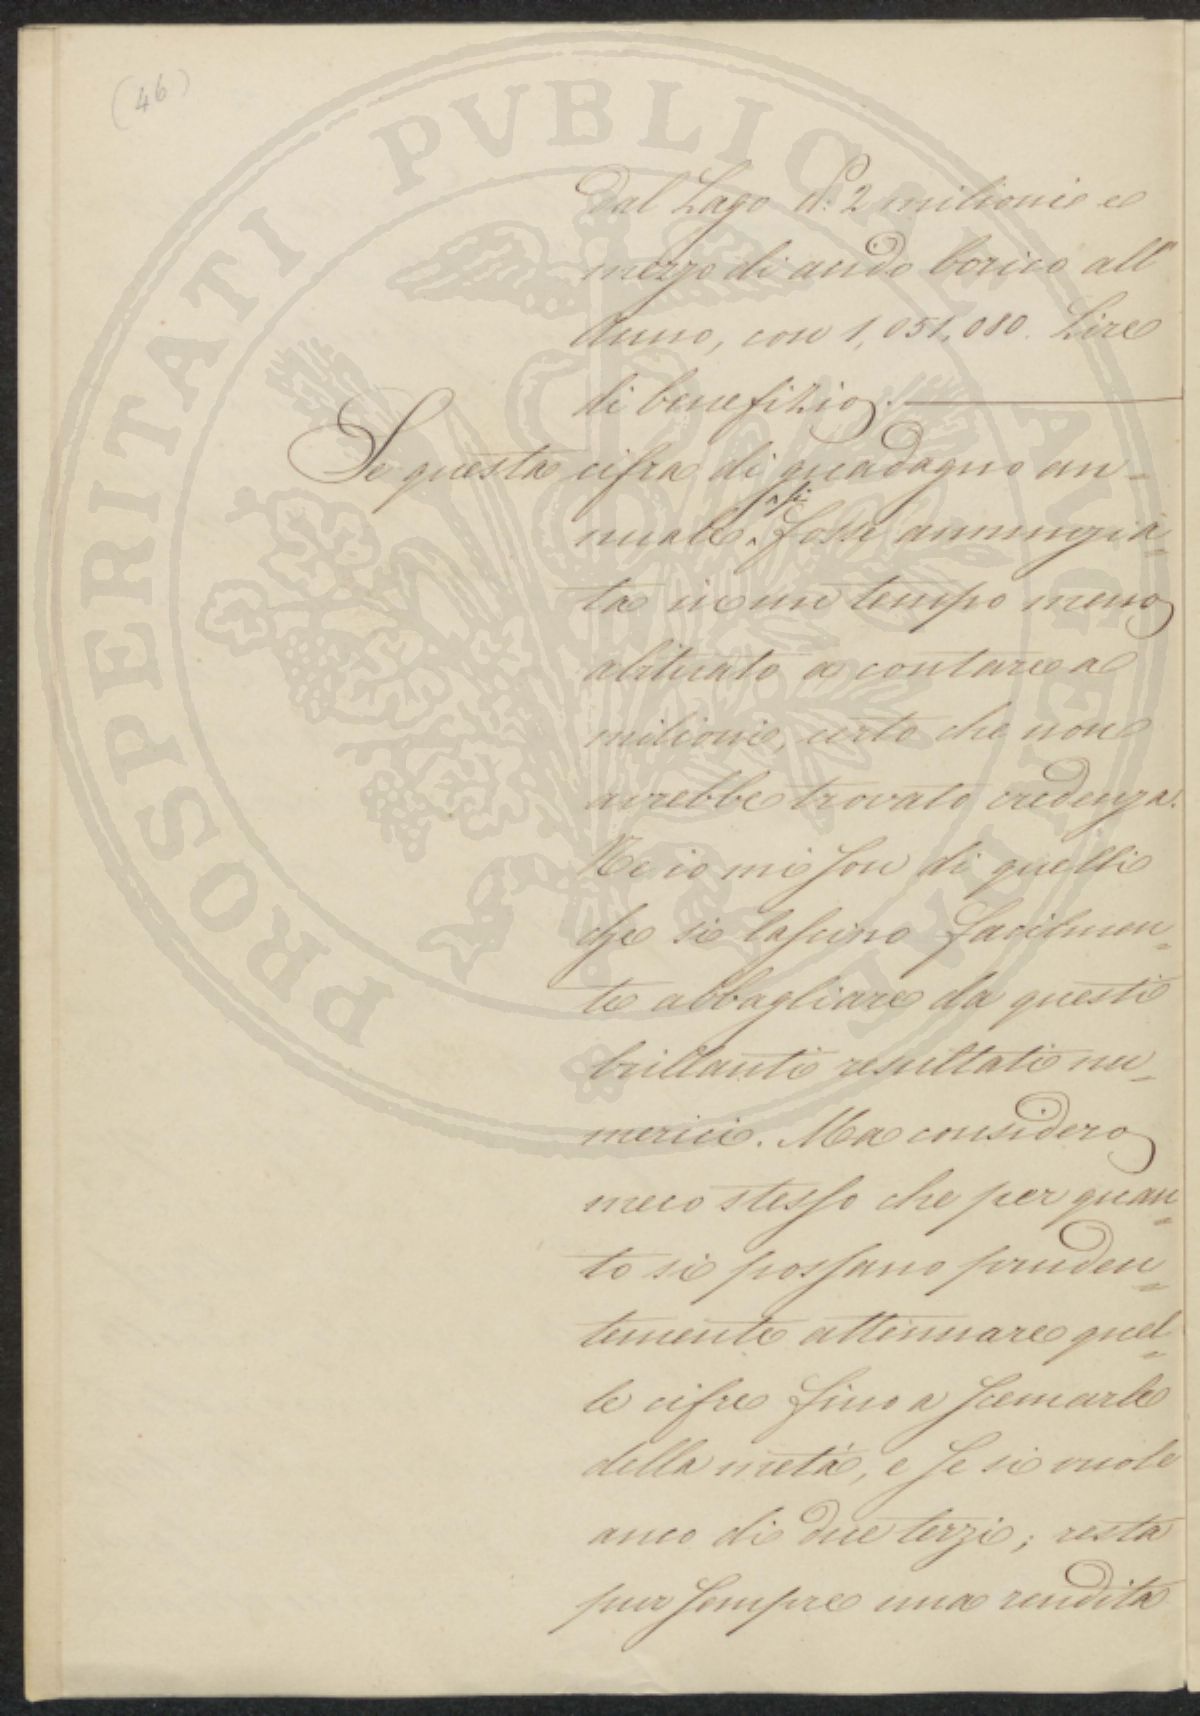 (46)
Dal Lago di 2 milioni e
mezzo di acido borico all'
Anno, con 1,051,080. Lire
di benefizio.
Se questa cifra di guadagno an=
nuale fosse annunzia=
ta in un tempo meno
abituato a contare a
milioni, certo che non
avrebbe trovato credenza.
Ne io mi son di quelli
che si lascino facilmen=
te abbagliare da questi
brillanti resultati nu=
merici. Ma considero
meco stesso che per quan=
to si possano pruden=
temente attenuare quel=
le cifre fino a scemarle
della metà, e se si vuole
anco di due terzi; resta
pur sempre una rendita
PROSPERITATI PVBLICAE AVGENDAE